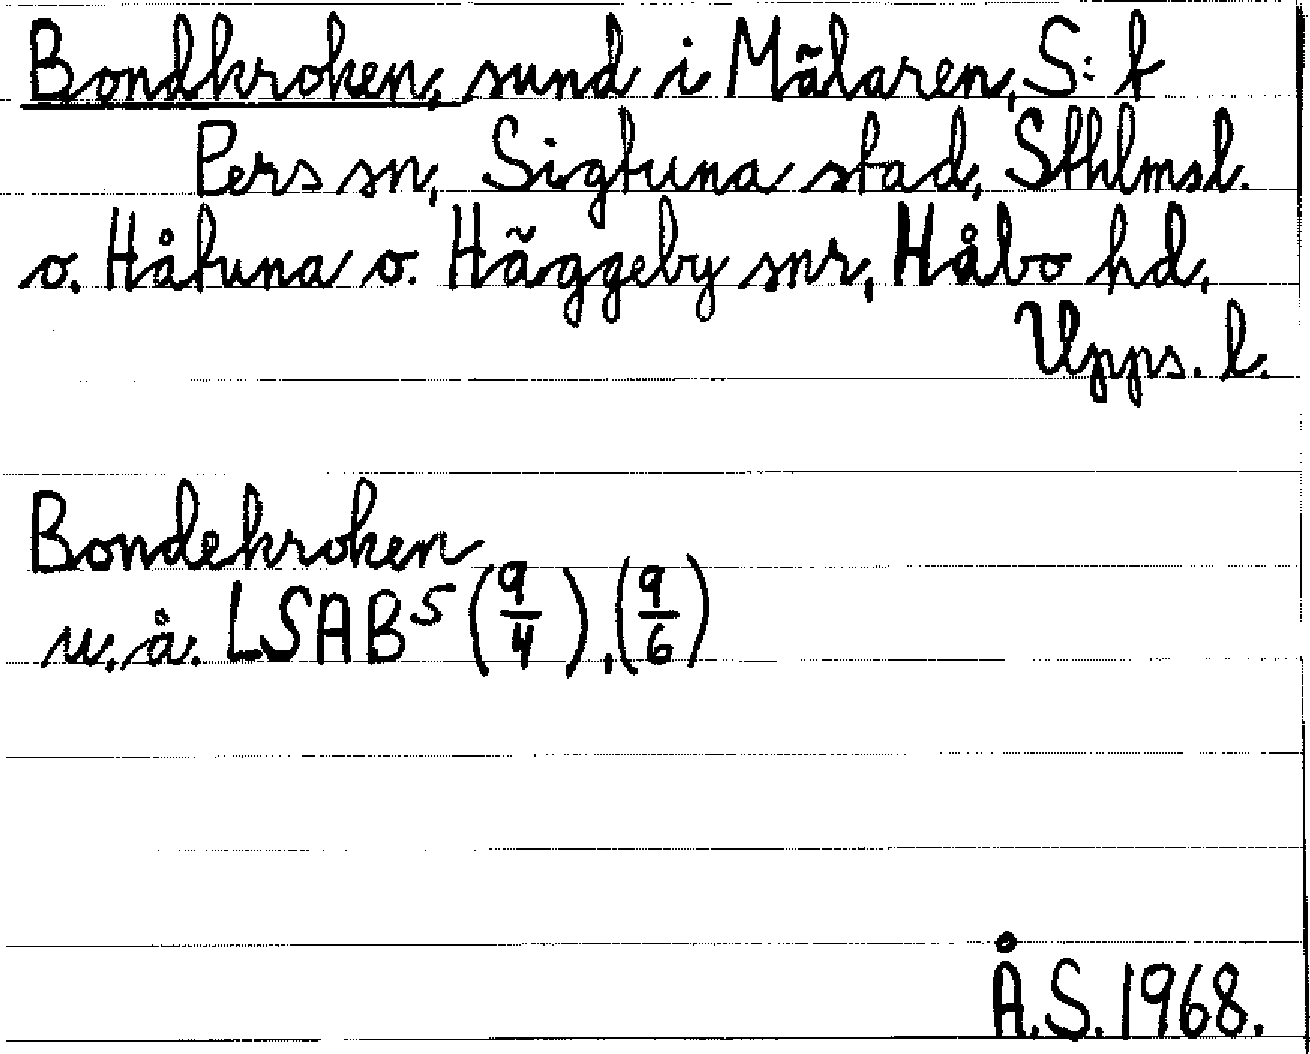 Bondkroken, sund i Mälaren, S:t
Pers sn, Sigtuna stad, Sthlmsl.
o. Håtuna o. Häggeby snr, Håbo hd,
Upps. l.
Bondekroken
u.å. LSAB⁵ (9/4), (9/6)
Å.S. 1968.